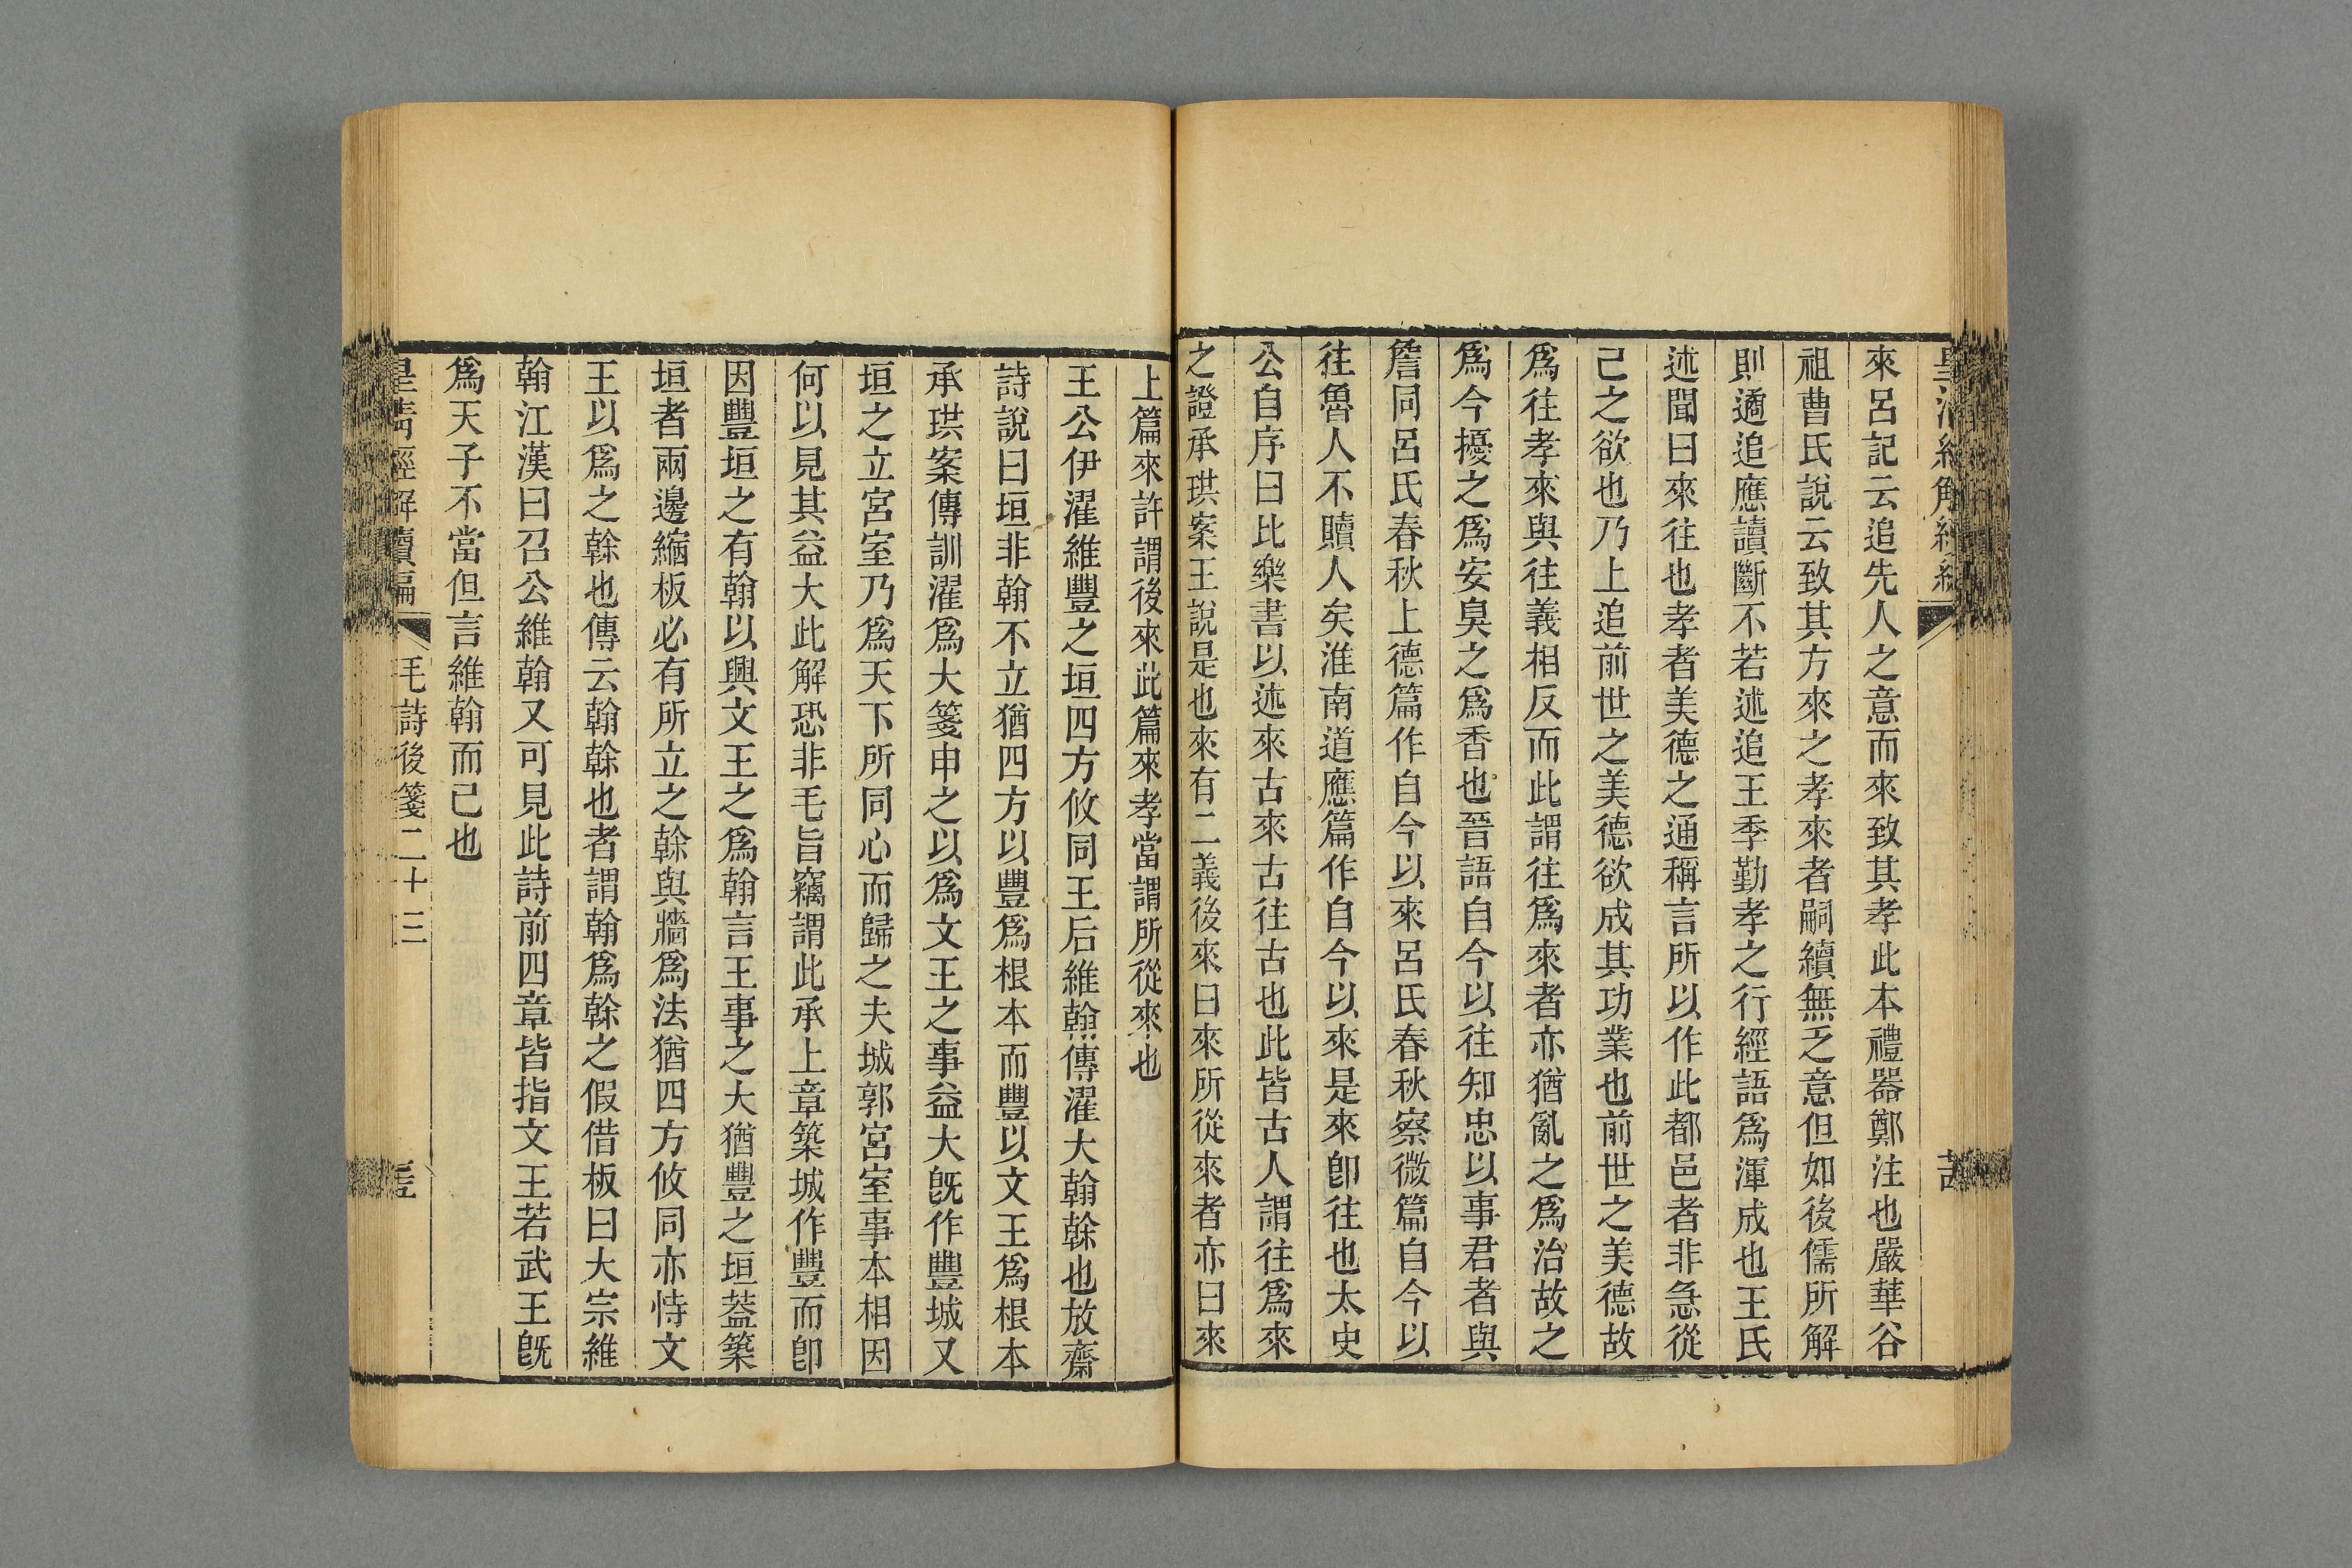 來呂記云追先人之意而來致其孝此本禮器鄭注也嚴華谷
祖曹氏說云致其方來之孝來者嗣續無乏意但如後儒所解
則遹追應讀斷不若述追王季勤孝之行經語爲渾成也王氏
述聞曰來往也孝者美德之通稱言所以作此都邑者非急從
己之欲也乃上追前世之美德欲成其功業也前世之美德故
爲往孝來與往義相反而此謂往爲來者亦猶亂之爲治故之
爲今擾之爲安臭之爲香也晉語自今以往知忠以事君者與
詹同呂氏春秋上德篇作自今以來呂氏春秋察微篇自今以
往魯人不贖人矣淮南道應篇作自今以來是來卽往也太史
公自序曰比樂書以述來古來古往古也此皆古人謂往爲來
之證承珙案王說是也來有二義後來曰來所從來者亦曰來
上篇來許謂後來此篇來孝當謂所從來也
王公伊濯維豐之垣四方攸同王后維翰傳濯大翰榦也放齋
詩說曰垣非翰不立猶四方以豐爲根本而豐以文王爲根本
承珙案傳訓濯爲大箋申之以爲文王之事益大旣作豐城又
垣之立宮室乃爲天下所同心而歸之夫城郭宮室事本相因
何以見其益大此解恐非毛旨竊謂此承上章築城作豐而卽
因豐垣之有翰以興文王之爲翰言王事之大猶豐之垣葢築
垣者兩邊縮板必有所立之榦與牆爲法猶四方攸同亦恃文
王以爲之榦也傳云翰榦也者謂翰爲榦之假借板曰大宗維
翰江漢曰召公維翰又可見此詩前四章皆指文王若武王旣
爲天子不當但言維翰而已也
皇淸經解續編 毛詩後箋二十三